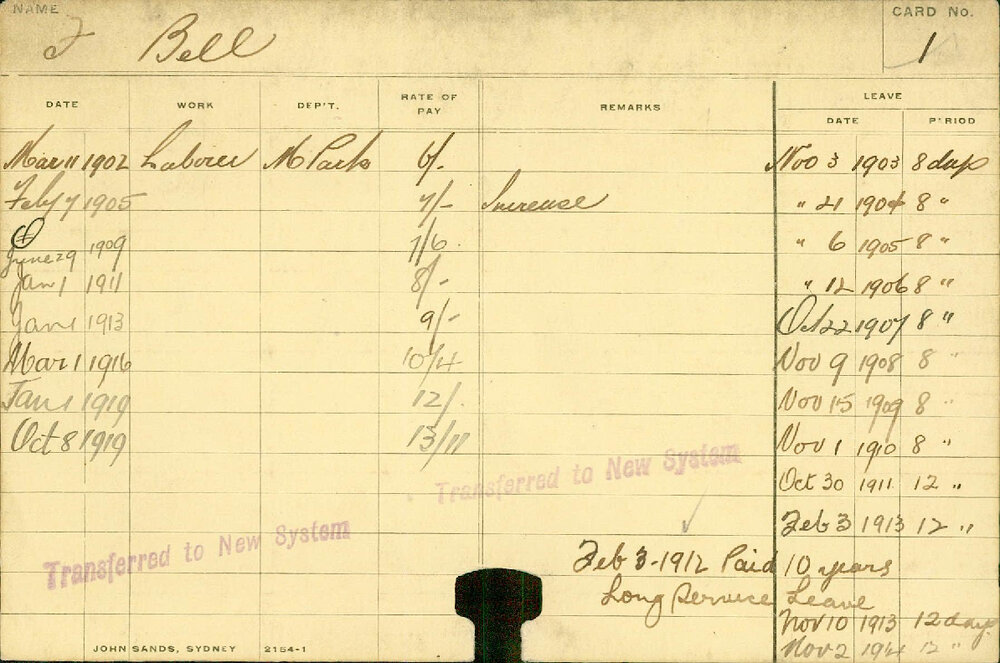 NAME
CARD No.
J Bell
1
DATE WORK DEP'T. RATE OF PAY REMARKS LEAVE
DATE PERIOD
Mar 11 1902 Laborer M Park 6/- Nov 3 1903 8 days
Feby 7 1905 7/- Increase " 21 1904 8 "
June 29 1909 7/6 " 6 1905 8 "
Jan 1 1911 8/- " 12 1906 8 "
Jan 1 1913 9/- Oct 22 1907 8 "
Mar 1 1916 10/4 Nov 9 1908 8 "
Jan 1 1919 12/- Nov 15 1909 8 "
Oct 8 1919 13/11 Nov 1 1910 8 "
Transferred to New System
Oct 30 1911 12 "
Feb 3 1913 12 "
Transferred to New System
Feb 3 - 1912 Paid 10 years
Long Service Leave
Nov 10 1913 12 days
Nov 2 1914 12 "
JOHN SANDS, SYDNEY 2154-1